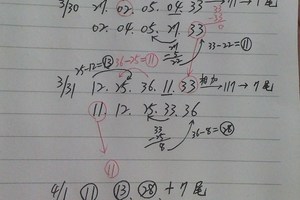 3/30 27. 02. 05. 04. 33 → 117 → 7尾
33
-33
0
02. 04. 05. 27. 33
27
-5
22
33-22=⑪
25-12=⑬ 36-25=⑪
3/31 12. 25. 36. 11. 33 相加→ 117 → 7尾
11 12. 25. 33. 36
33
25
8
36-8=㉘
11
4/1 ⑪ ⑬ ㉘ + 7尾